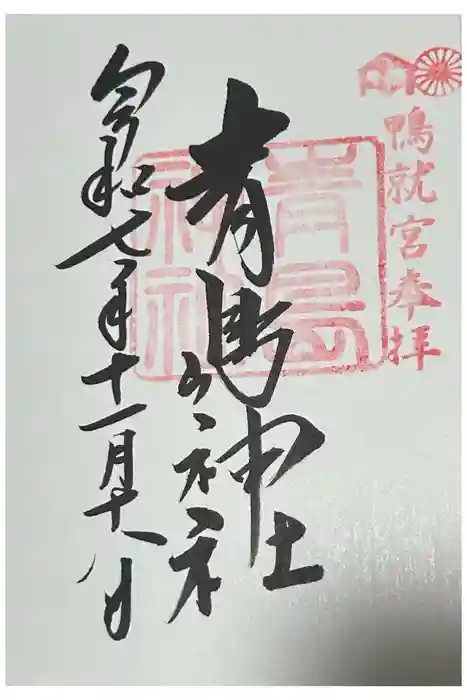 鴨就宮奉拝
青島神社
青島神社
令和七年十一月十八日